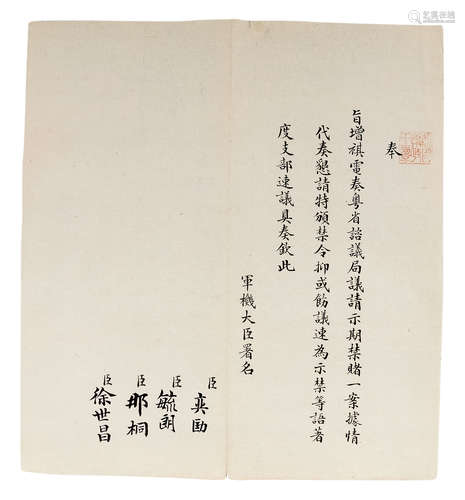 奉
旨增祺電奏粵省諮議局議請示期禁賭一案據情
代奏懇請特頒禁令抑或飭議速為示禁等語著
度支部速議具奏欽此
軍機大臣署名
臣奕劻
臣毓朗
臣那桐
臣徐世昌